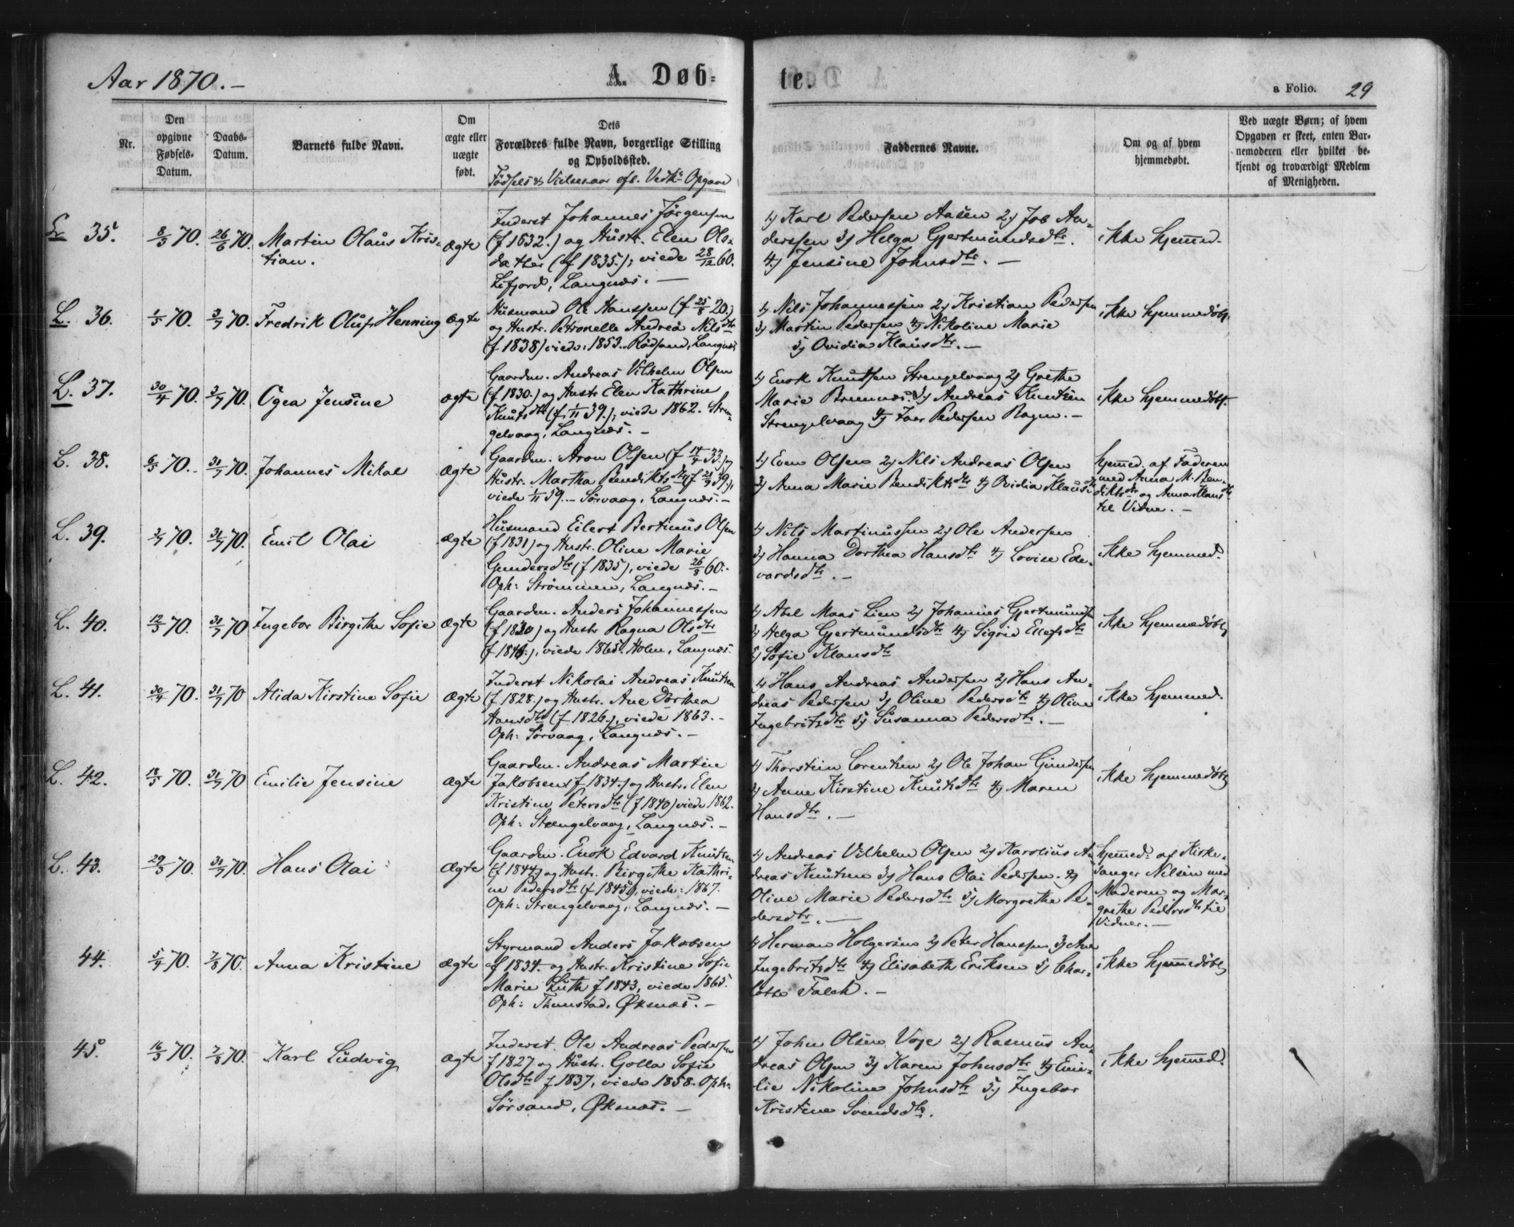 Aar 1870.-
A. Døb-
te.
a Folio. 29
Nr.
Den
opgivne
Fødsels-
Datum.
Daabs-
Datum.
Barnets fulde Navn.
Om
ægte eller
uægte
født.
Dets
Forældres fulde Navn, borgerlige Stilling
og Opholdssted.
Fødsels & Vielsesaar efl. Vedk. Opgave
Faddernes Navne.
Om og af hvem
hjemmedøbt.
Ved uægte Børn; af hvem
Opgaven er skeet, enten Bar-
nemoderen eller hvilket be-
kjendt og troværdigt Medlem
af Menigheden.
35.
8/3 70. 26/6 70.
Martin Olaus Kris-
tian.
ægte
Inderst Johannes Jørgensen
(f 1832.) og Hustr. Elen Ols-
datter (f 1835.); viede 28/12 60.
Lifjord, Langnæs. -
1) Karl Pedersen Aasen 2) Job An-
derssen 3) Helga Gjertmundsdtr.
4) Jensine Johnsdtr. -
ikke hjemmed.
L. 36.
1/5 70. 3/7 70.
Fredrik Oluf Henning
ægte
Husmand Ole Hanssen (f 25/8 20.)
og Hustr. Petronelle Andrea Nilsdtr
(f 1838) viede: 1853. Rødsand, Langnæs
1) Nils Johannessen 2) Kristian Pedersen
3) Martin Pedersen 4) Nikoline Marie
5) Ovidia Klausdtr. -
ikke hjemmedøbt.
L. 37.
30/4 70. 3/7 70.
Ogea Jensine
ægte
Gaardm. Andreas Vilhelm Olsen
(f 1830.) og Hustr Elen Kathrine
Knutsdtr (f 1/11 39.); viede 1862. Stren-
gelvaag, Langnæs. -
1) Enok Knutsen Strengelvaag 2) Grethe
Marie 3) Andreas Knutsen
Strengelvaag 4) Pedersen -
ikke hjemmedøbt.
L. 38.
6/5 70. 31/7 70.
Johannes Mikal
ægte
Gaardm. Aron Olsen (f 33) og
Hustr. Martha Bendiktsdtr (f 39),
viede 59. - Sørvaag, Langnæs. -
1) Even Olsen 2) Nils Andreas Olsen
3) Anna Marie Bendiktsdtr 4) Ovidia Klausdtr
hjemmed. af Faderen
med Anna M. Ben-
diktsdtr og Anna Klausdtr
til Vidne. -
L. 39.
70. 31/7 70.
Emil Olai
ægte
Husmand Eilert Bertinus Olsen
(f 1831) og Hustr. Oline Marie
Gundersdtr (f 1835), viede 26/8 60.
Oph: Strømmen, Langnæs. -
1) Nils Martinussen 2) Ole Andersen
3) Hanna Dorthea Hansdtr 4) Lovise Ede-
vardsdtr. -
ikke hjemmed.
L. 40.
70. 31/7 70
Ingebor Birgithe Sofie
ægte
Gaardm. Anders Johannessen
(f 1830) og Hustr Ragna Olsdtr
viede 1865. Holm, Langnæs.
1) Axel Maas Lien 2) Johannes Gjertmundsen
3) Helga Gjertmundsdtr 4) Sigrid Ellefsdtr
5) Sofie Klausdtr
ikke hjemmedøbt
L. 41.
70. 31/7 70
Alida Kirstine Sofie
ægte
Inderst Nikolai Andreas Knutsen
(f 1828.) og Hustr. Ane Dorthea
Hansdtr (f 1826.), viede 1863. -
Oph: Sørvaag, Langnæs. -
1) Hans Andreas Andersen 2) Hans An-
dreas Pedersen 3) Oline Pedersdtr 4) Oline
Ingebritsdtr 5) Susanna Pedersdtr. -
ikke hjemmed.
L. 42.
70. 31/7 70
Emilie Jensine
ægte
Gaardm. Andreas Martin
Jakobsen (f 1834.) og Hustr. Elen
Kristine Petersdtr (f 1840) viede 1862.
Oph: Strengelvaag, Langnæs. -
1) Thorstein Lorentsen 2) Ole Johan Gundersen
3) Anne Kirstine Knutsdtr 4) Maren
Hansdtr. -
ikke hjemmedøbt
L. 43.
29/5 70. 31/7 70.
Hans Olai
ægte
Gaardm. Enok Edvard Knutsen
(f 1844) og Hustr. Birgithe Kathri-
ne Pedersdtr (f 1845), viede: 1867.
Oph: Strengelvaag, Langnæs. -
1) Andreas Vilhelm Olsen 2) Karolius An-
dreas Knutsen 3) Hans Olai Pedersen. 4)
Oline Marie Pedersdtr 5) Morgrethe Pe-
dersdtr. -
hjemmed: af Kirke-
sanger Nilsen med
Moderen og Mar-
grethe Pedersdtr til
Vidner. -
44.
5/4 70. 7/8 70.
Anna Kristine
ægte
Styrmand Anders Jakobsen
f 1834. og Hustr. Kristine Sofie
Marie Luth f 1843, viede 1865.
Oph: Tunstad, Øksnæs. -
1) Herman Holgersen 2) Peter Hanssen 3) Ane
Ingebritsdtr 4) Elisabeth Eriksen 5) Char-
lotte Falch. -
ikke hjemmedøbt
45.
16/5 70. 7/8 70.
Karl Ludvig
ægte
Inderst. Ole Andreas Pedersen
f 1827 og Hustr. Golla Sofie
Olsdtr f 1837, viede 1858. Oph:
Sørsand, Øksnæs. -
1) John Olsen Voje 2) Rasmus An-
dreas Olsen 3) Karen Johnsdtr 4) Emi-
lie Nikoline Johnsdtr 5) Ingebor
Kristine Svendsdtr.
ikke hjemmed.